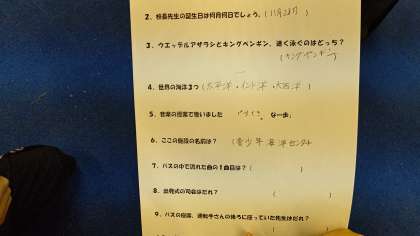 2、校長先生の誕生日は何月何日でしょう。(11月23日)
3、ウエッデルアザラシとキングペンギン、速く泳ぐのはどっち？
(キングペンギン)
4、世界の海洋3つ(太平洋・インド洋・大西洋)
5、音楽の授業で歌いました な一歩」
6、ここの施設の名前は？ (青少年海洋センター
7、バスの中で流れた曲の1曲目は？ ( )
8、出発式の司会はだれ？ ( )
9、バスの座席、運転手さんの後ろに座っていた先生はだれ？